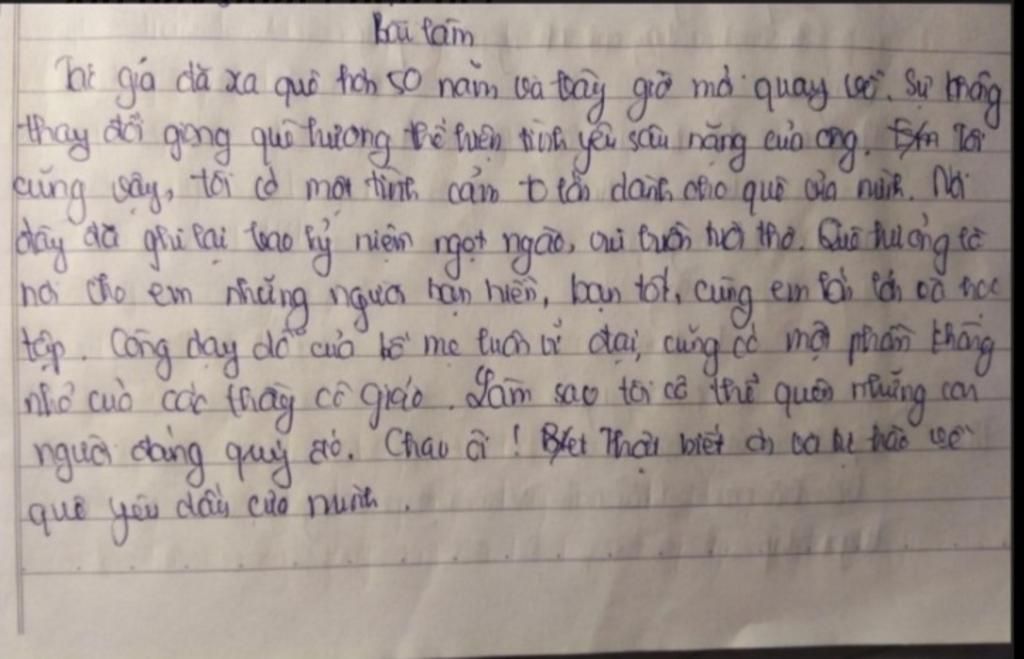 Bài làm
Tác giả đã xa quê hơn 50 năm và bây giờ mới quay về. Sự không
thay đổi giọng quê hương thể hiện tình yêu sâu nặng của ông. Tôi
cũng vậy, tôi có một tình cảm to lớn dành cho quê của mình. Nơi
đây đã ghi lại bao kỷ niệm ngọt ngào, vui buồn tuổi thơ. Quê hương là
nơi cho em những người bạn hiền, bạn tốt, cùng em lớn và học
tập. Công dạy dỗ của bố mẹ luôn vĩ đại, cũng có một phần không
nhỏ của các thầy cô giáo. Làm sao tôi có thể quên những con
người đáng quý đó. Chao ôi ! Thật biết ơn và tự hào về
quê yêu dấu của mình.